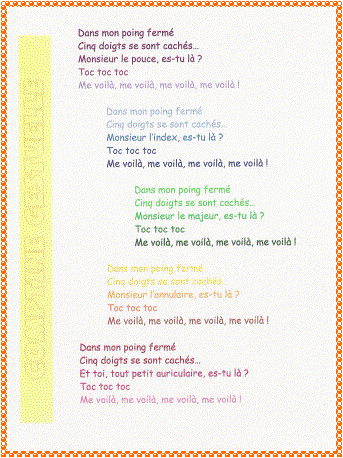 Dans mon poing fermé
Cinq doigts se sont cachés...
Monsieur le pouce, es-tu là ?
Toc toc toc
Me voilà, me voilà, me voilà, me voilà !
Dans mon poing fermé
Cinq doigts se sont cachés...
Monsieur l'index, es-tu là ?
Toc toc toc
Me voilà, me voilà, me voilà, me voilà !
Dans mon poing fermé
Cinq doigts se sont cachés...
Monsieur le majeur, es-tu là ?
Toc toc toc
Me voilà, me voilà, me voilà, me voilà !
Dans mon poing fermé
Cinq doigts se sont cachés
Monsieur l'annulaire, es-tu là ?
Toc toc toc
Me voilà, me voilà, me voilà, me voilà !
Dans mon poing fermé
Cinq doigts se sont cachés...
Et toi, tout petit auriculaire, es-tu là ?
Toc toc toc
Me voilà, me voilà, me voilà, me voilà !